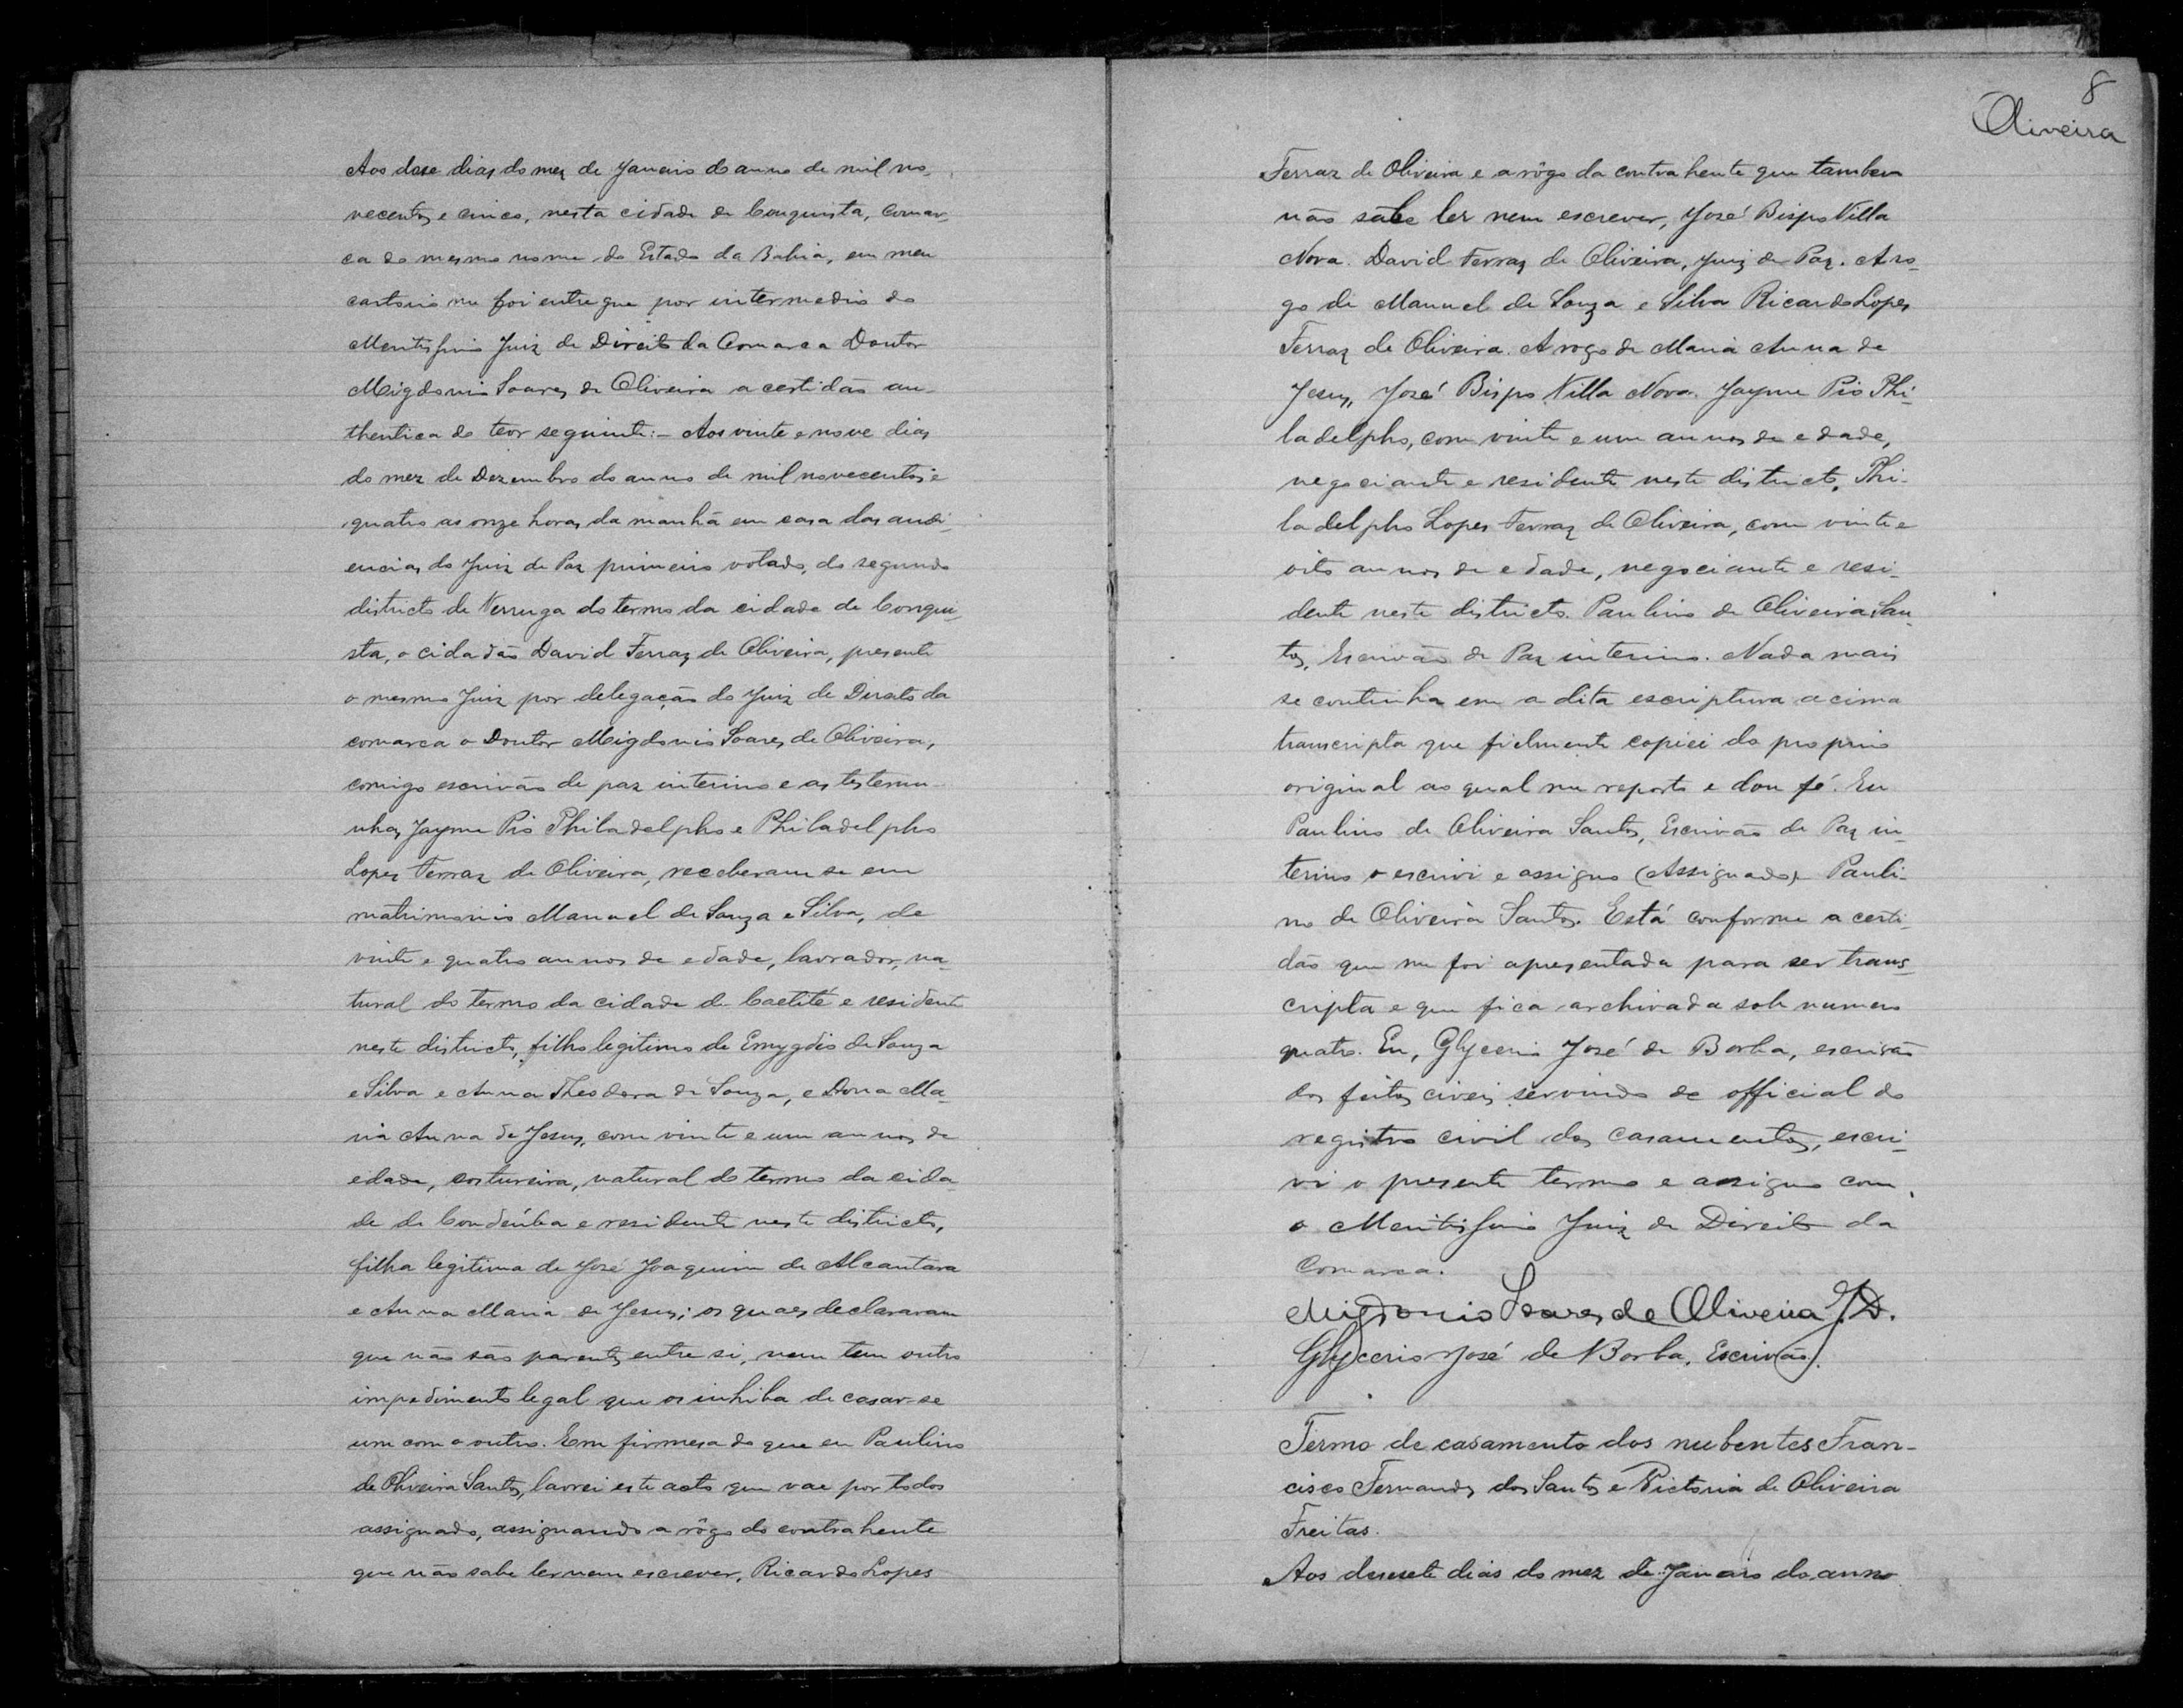 Aos dose dias do mez de Janeiro do anno de mil no-
vecentos e cinco, nesta cidade de Conquista, comar-
ca do mesmo nome do Estado da Bahia, em meu
cartorio me foi entregue por intermedio do
Meritissimo Juiz de Direito da Comarca Doutor
Migdonio Soares de Oliveira a certidão au-
thentica do teor seguinte:- Aos vinte e nove dias
do mez de Dezembro do anno de mil novecentos e
quatro as onze horas da manhã em casa das audi-
encias do Juiz de Paz primeiro votado, do segundo
districto de Verruga do termo da cidade de Conqui-
sta, o cidadão David Ferraz de Oliveira, presente
o mesmo Juiz por delegação do Juiz de Direito da
comarca o Doutor Migdonio Soares de Oliveira,
comigo escrivão de paz interino e as testemu-
nhas Jayme Pio Philadelpho e Philadelpho
Lopes Ferraz de Oliveira, receberam se em
matrimonio Manuel de Souza e Silva, de
vinte e quatro annos de edade, lavrador, na-
tural do termo da cidade de Caetité e residente
neste districto, filho legitimo de Emygdio de Souza
e Silva e Anna Theodora de Souza, e Dona Ma-
ria Anna de Jesus, com vinte e um annos de
edade, costureira, natural do termo da cida-
de de Condeúba e residente neste districto,
filha legitima de José Joaquim de Alcantara
e Anna Maria de Jesus; os quaes declararam
que não são parentes entre si, nem tem outro
impedimento legal que os inhiba de casar-se
um com o outro. Em firmesa do que eu Paulino
de Oliveira Santos, lavrei este acto que vae por todos
assignado, assignando a rôgo do contrahente
que não sabe ler nem escrever, Ricardo Lopes
8
Oliveira
Ferraz de Oliveira e a rôgo da contrahente que tambem
não sabe ler nem escrever, José Bispo Villa
Nova. David Ferraz de Oliveira, Juiz de Paz. A ro-
go de Manuel de Souza e Silva Ricardo Lopes
Ferraz de Oliveira. A rogo de Maria Anna de
Jesus, José Bispo Villa Nova. Jayme Pio Phi-
ladelpho, com vinte e um annos de edade,
negociante e residente neste districto, Phi-
ladelpho Lopes Ferraz de Oliveira, com vinte e
oito annos de edade, negociante e resi-
dente neste districto. Paulino de Oliveira San-
tos, Escrivão de Paz interino. Nada mais
se continha em a dita escriptura acima
transcripta que fielmente copiei do proprio
original ao qual me reporto e dou fé. Eu
Paulino de Oliveira Santos, Escrivão de Paz in-
terino o escrivi e assigno (Assignado). Pauli-
no de Oliveira Santos. Está conforme a certi-
dão que me foi apresentada para ser trans-
cripta e que fica archivada sob numero
quatro. Eu, Glycerio José de Borba, escrivão
dos feitos civeis servindo de official do
registro civil dos casamentos, escri-
vi o presente termo e assigno com
o Meritissimo Juiz de Direito da
Comarca.
Migdonio Soares de Oliveira J.D.
Glycerio José de Borba, Escrivão.
Termo de casamento dos nubentes Fran-
cisco Fernandes dos Santos e Victoria de Oliveira
Freitas.
Aos desesete dias do mez de Janeiro do anno